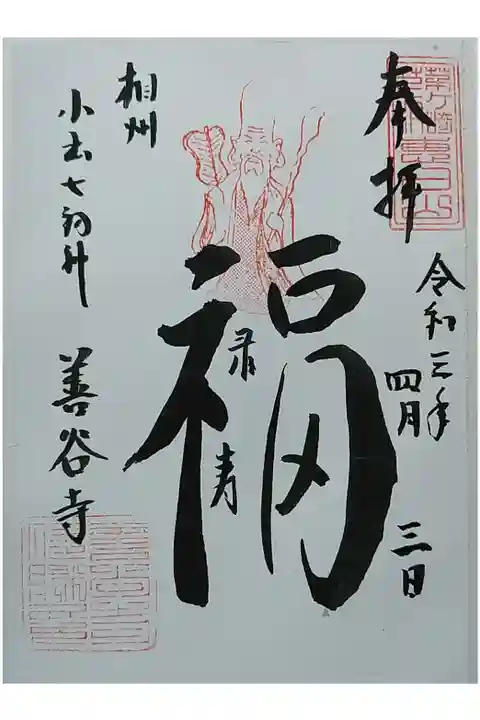 奉拝
令和三年
四月
三日
福
禄寿
相州
小出七福神
善谷寺